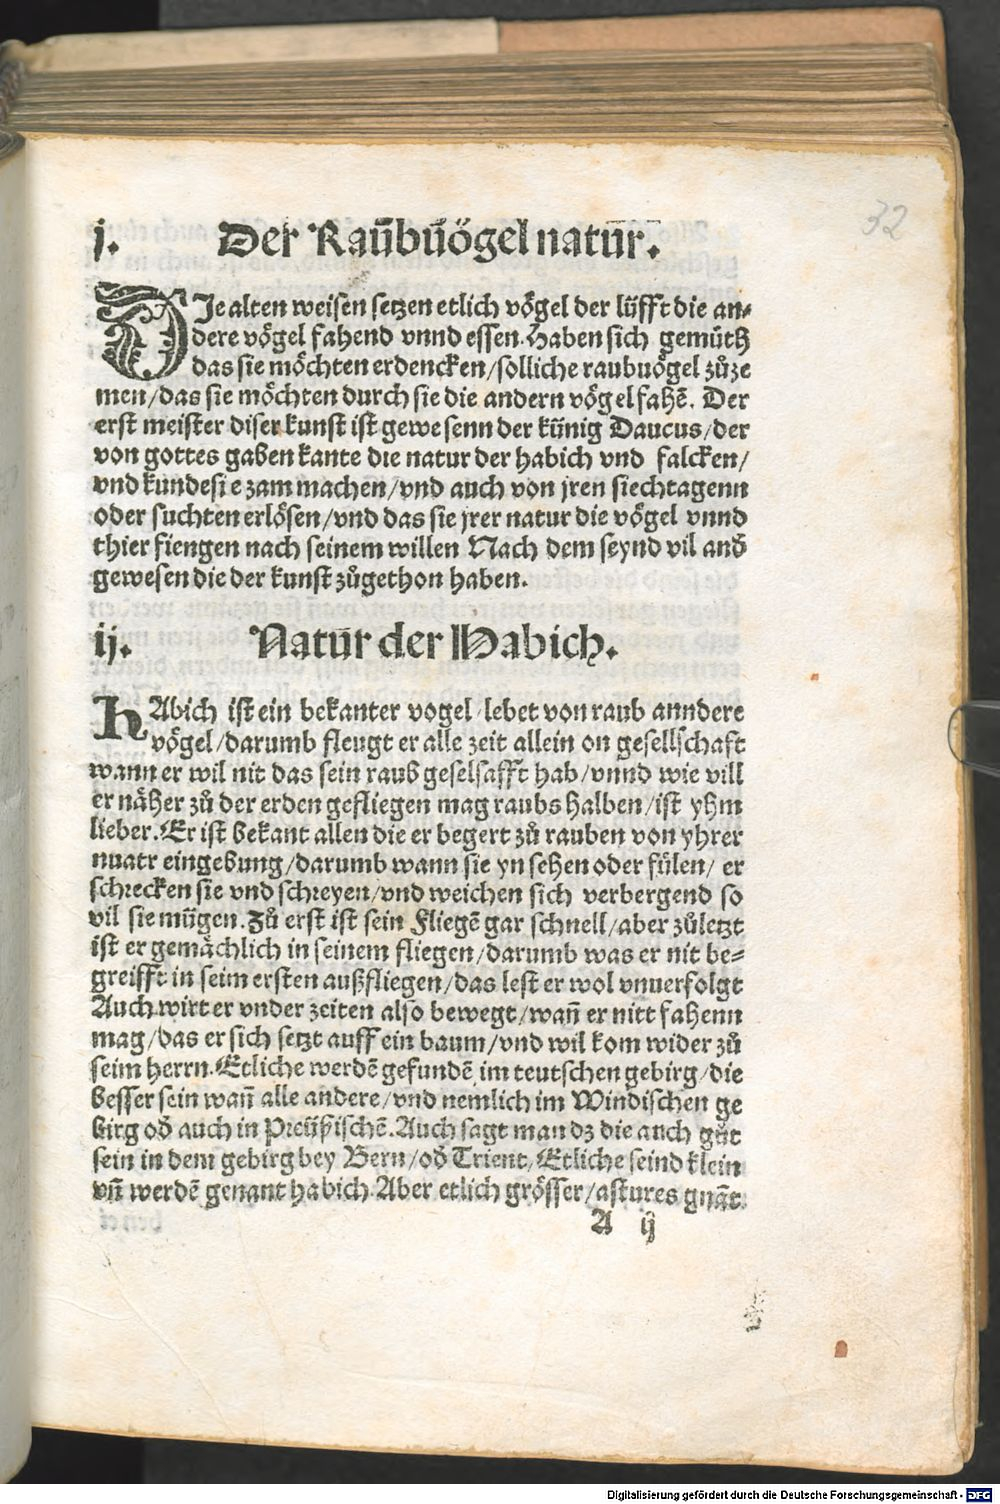 32
j. Der Raūbūögel natūr.
DJe alten weisen setzen etlich vögel der lüfft die an⸗
dere vögel fahend vnnd essen. Haben sich gemüth
das sie möchten erdencken/solliche raubuögel zůze
men/das sie möchten durch sie die andern vögel fahē. Der
erst meister diser kunst ist gewesenn der künig Daucus/der
von gottes gaben kante die natur der habich vnd falcken/
vnd kundesi e zam machen/vnd auch von jren siechtagenn
oder suchten erlösen/vnd das sie jrer natur die vögel vnnd
thier fiengen nach seinem willen Nach dem seynd vil and̄
gewesen die der kunst zůgethon haben.
ij. Natūr der Habich.
HAbich ist ein bekanter vogel/lebet von raub anndere
vögel/darumb fleugt er alle zeit allein on gesellschaft
wann er wil nit das sein raub geselsafft hab/vnnd wie vill
er näher zů der erden gefliegen mag raubs halben/ist yhm
lieber. Er ist bekant allen die er begert zů rauben von yhrer
nuatr eingebung/darumb wann sie yn sehen oder fülen/ er
schrecken sie vnd schreyen/vnd weichen sich verbergend so
vil sie mügen. Zů erst ist sein fliegē gar schnell/aber zůletzt
ist er gemächlich in seinem fliegen/darumb was er nit be⸗
greifft in seim ersten außfliegen/das lest er wol vnuerfolgt
Auch wirt er vnder zeiten also bewegt/wañ er nitt fahenn
mag/das er sich setzt auff ein baum/vnd wil kom wider zů
seim herrn. Etliche werdē gefundē im teutschen gebirg/die
besser sein wañ alle andere/vnd nemlich im Windischen ge
birg od̄ auch in Preüssischē. Auch sagt man dz die auch gůt
sein in dem gebirg bey Bern/od̄ Trient/Etliche seind klein
vñ werdē genant habich. Aber etlich grösser/astures gnāt.
A ij
Digitalisierung gefördert durch die Deutsche Forschungsgemeinschaft - DFG